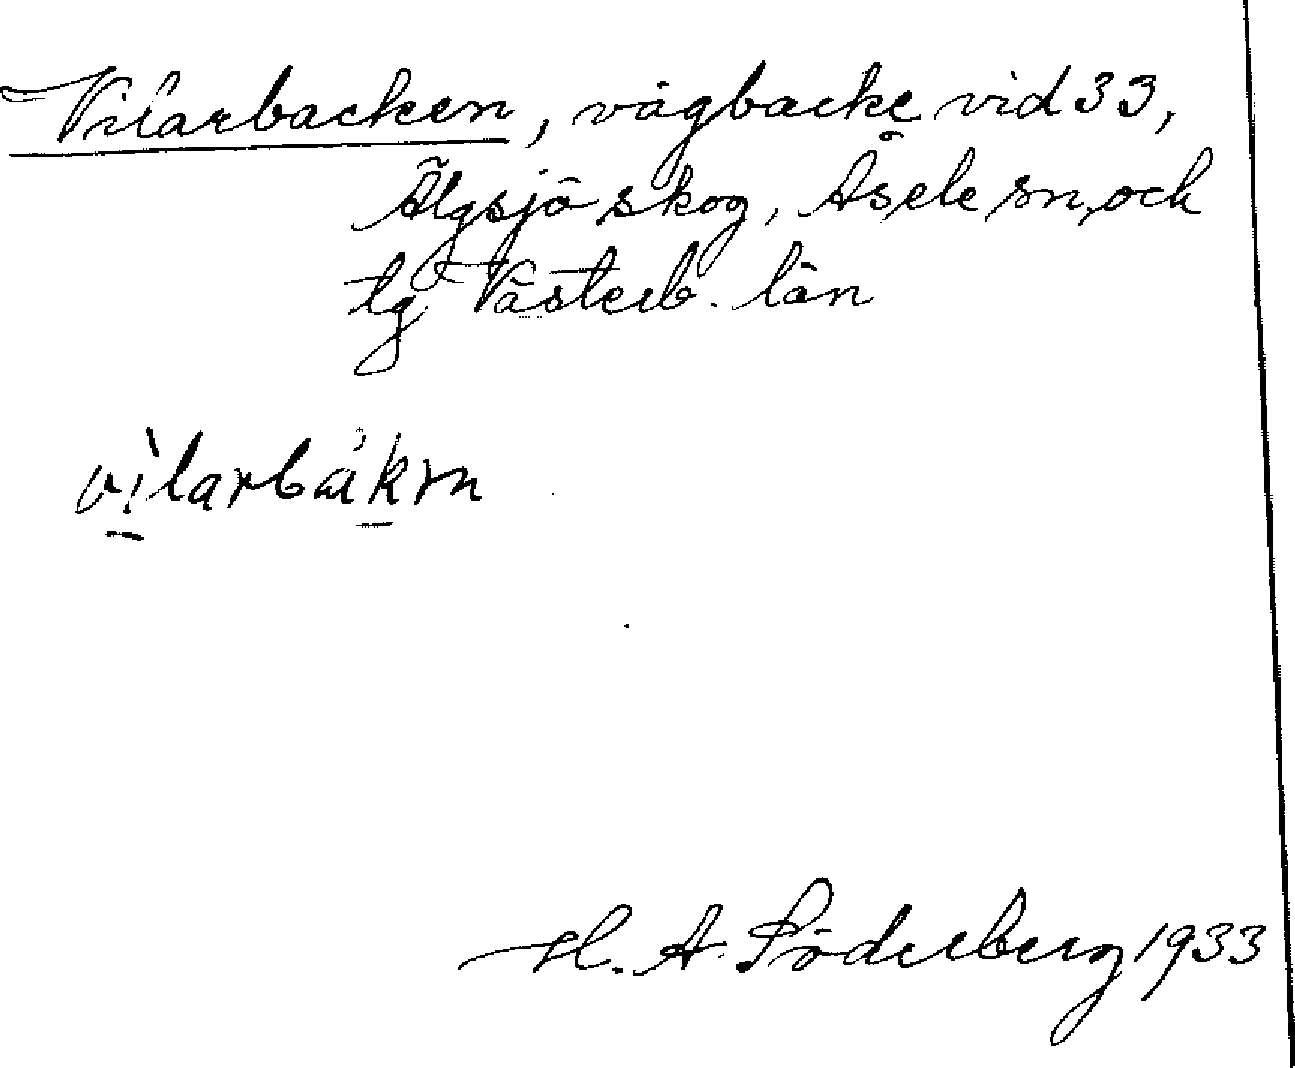 Vilarbacken, vägbacke vid 33,
Älgsjö skog, Åsele sn, och
tg Västerb. län
vìlarbákm
H. A. Söderberg 1933